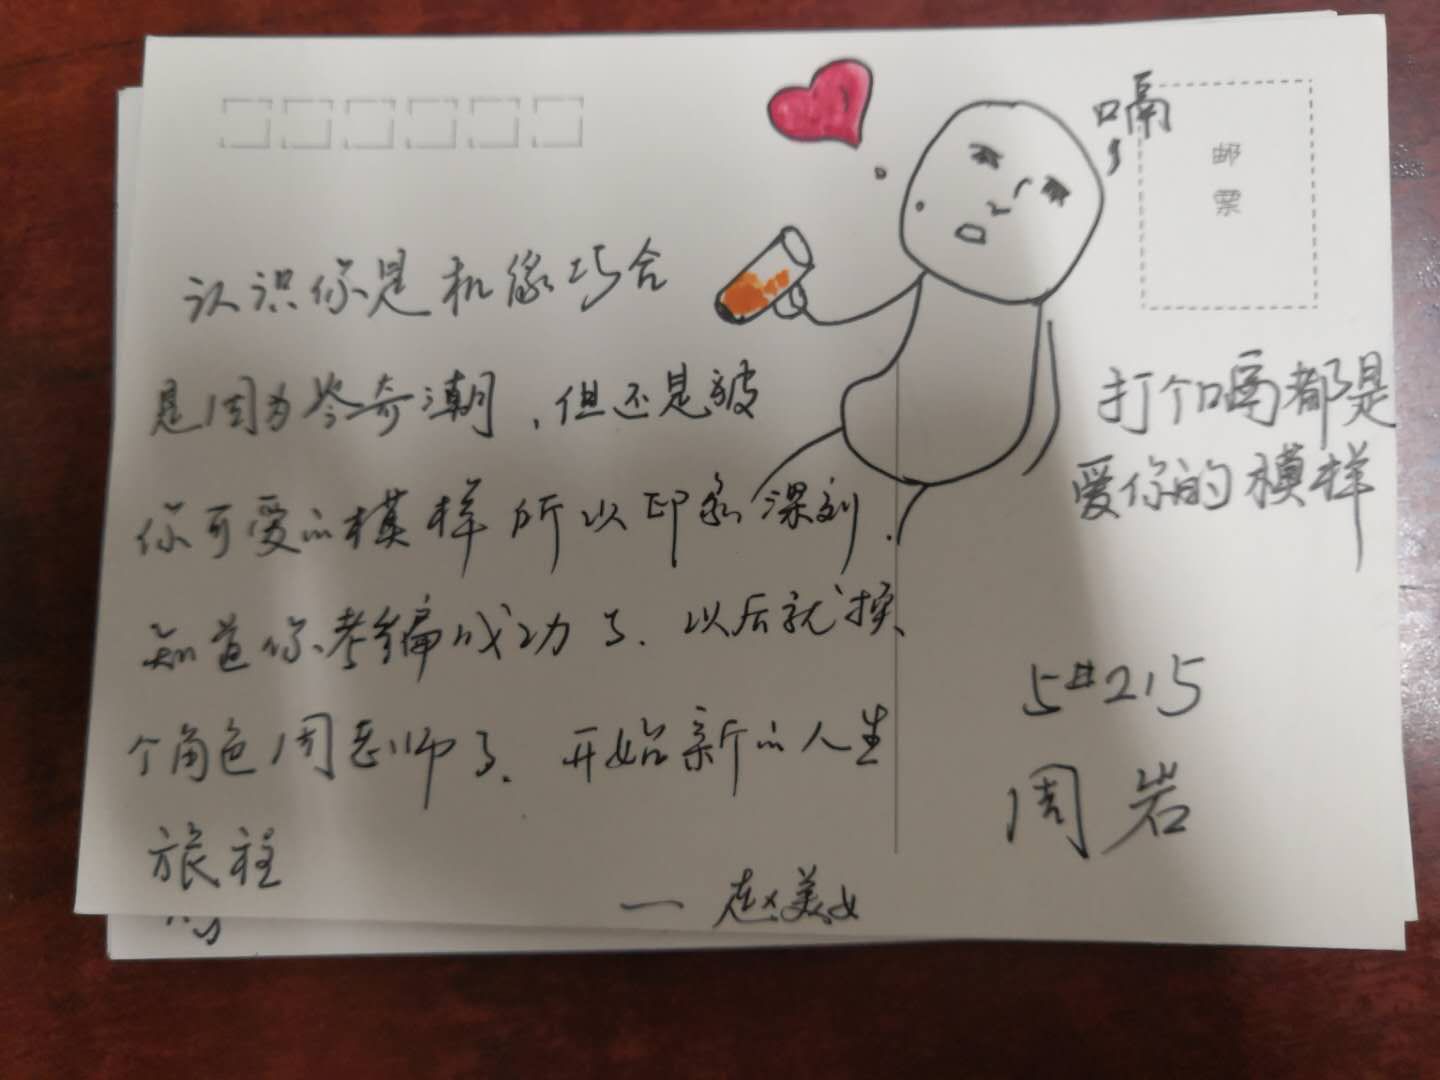 嗝
邮
票
认识你是机缘巧合
是因为岑奇潮,但还是被
你可爱的模样所以印象深刻.
知道你考编成功了、以后就换
个角色周老师了、开始新的人生
旅程
——赵美女
打个嗝都是
爱你的模样
5#215
周岩